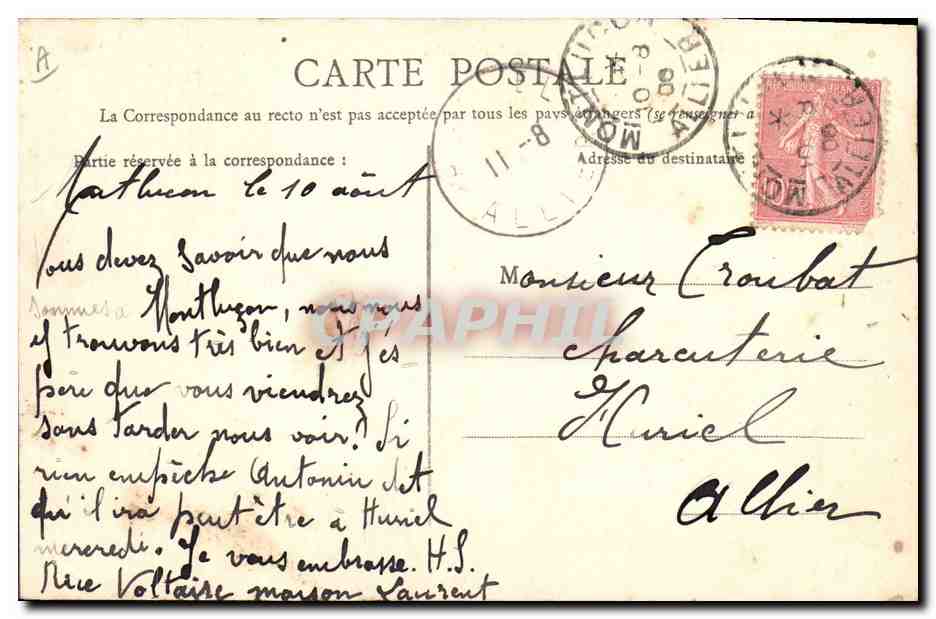 A
CARTE POSTALE
La Correspondance au recto n'est pas acceptée par tous les pays étrangers (se renseigner a
Partie réservée à la correspondance :
Adresse du destinataire
MONTLUÇON
ALLIER
11-8
ALLIER
ALLIER
Montluçon le 10 août
Vous devez savoir que nous
sommes a Montluçon, nous nous
y trouvons très bien et j'es
père que vous viendrez
sans tarder nous voir. Si
rien empêche Antonin dit
qu'il ira peut être à Huriel
mercredi. Je vous embrasse. H.S.
Rue Voltaire maison Laurent
Monsieur Troubat
Charcuterie
Huriel
Allier
CPAPHIL